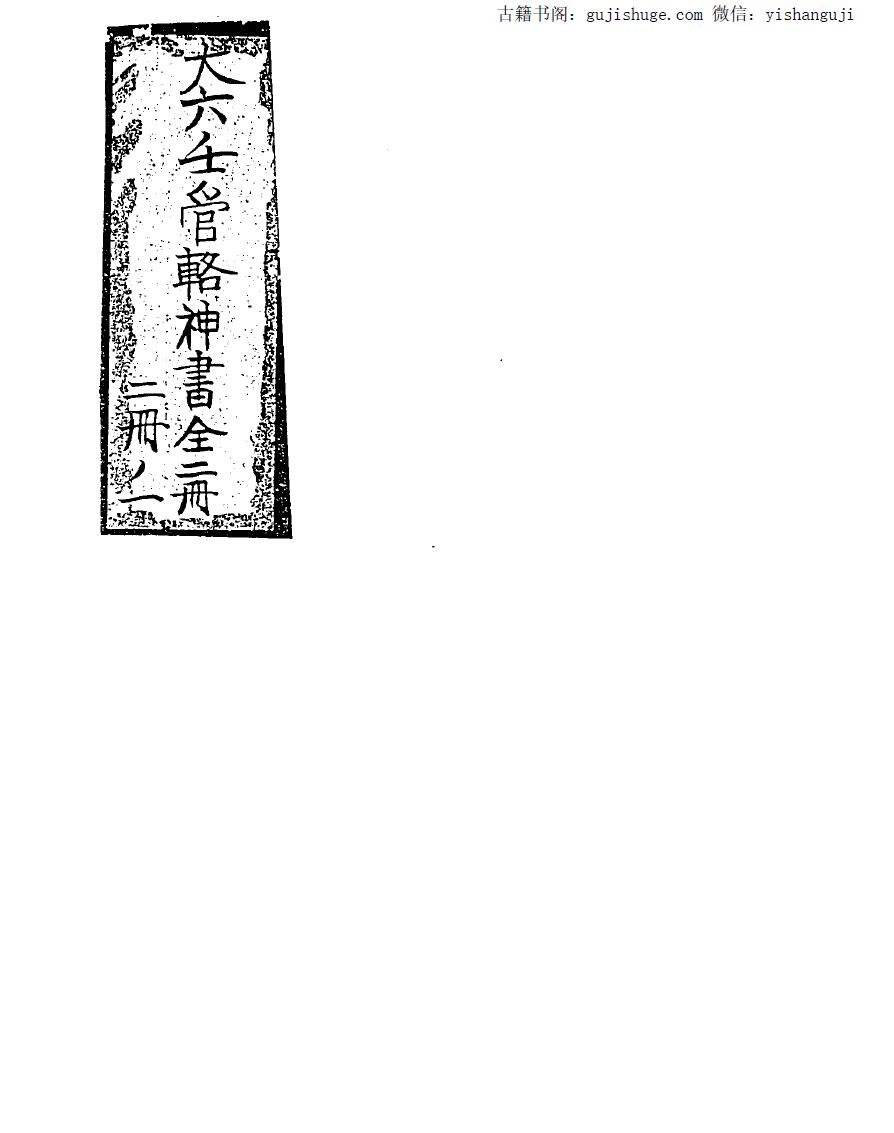 古籍书阁：gujishuge.com 微信：yishanguji
大六壬管輅神書全二冊
二冊ノ一